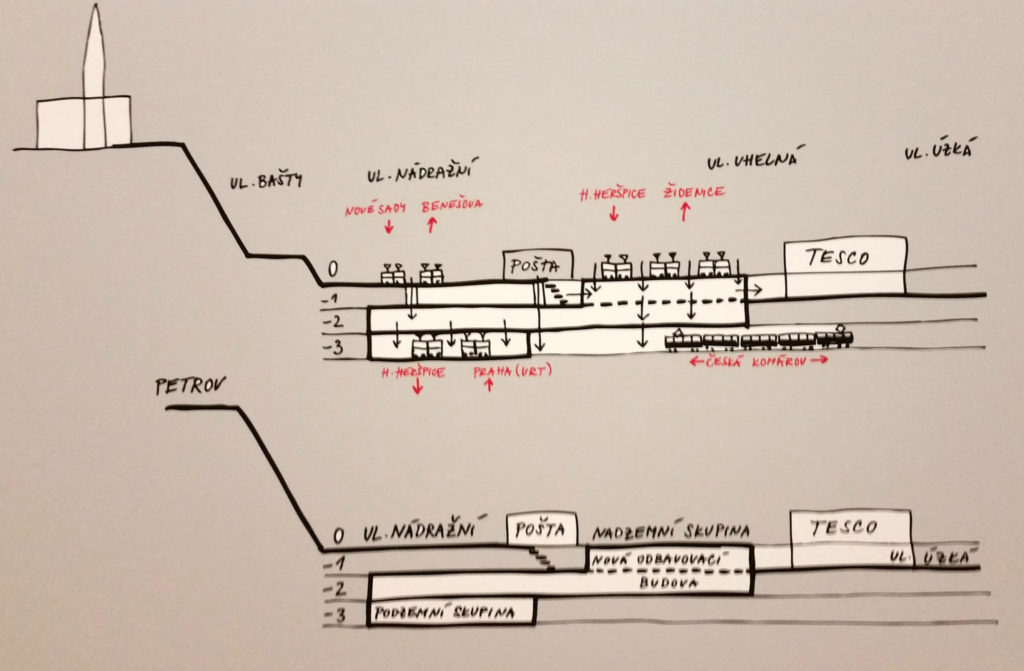 UL. BAŠTY
UL. NÁDRAŽNÍ
UL. UHELNÁ
UL. ÚZKÁ
NOVÉ SADY BENEŠOVA
H. HERŠPICE ŽIDENICE
0
POŠTA
TESCO
-1
-2
-3
H. HERŠPICE PRAHA (VRT)
ČESKÁ KOMÁROV
PETROV
0
UL. NÁDRAŽNÍ
POŠTA
NADZEMNÍ SKUPINA
TESCO
-1
NOVÁ ODBAVOVACÍ
UL. ÚZKÁ
-2
BUDOVA
-3
PODZEMNÍ SKUPINA